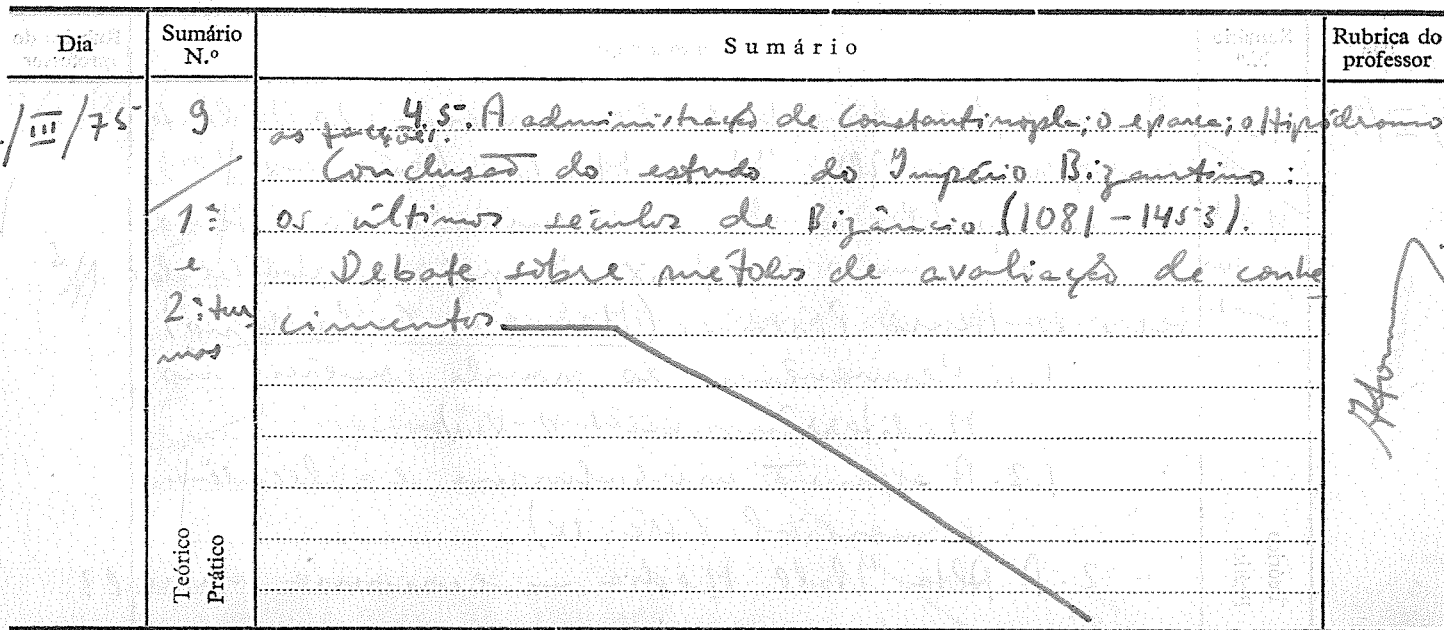 Dia
Sumário N.º
Sumário
Rubrica do professor
/III/75
9
4.5. A administração de Constantinopla; o eparca; o Hipódromo
as facções.
Conclusão do estudo do Império Bizantino:
1ª
os últimos séculos de Bizâncio (1081-1453).
e
Debate sobre métodos de avaliação de conhe
2ª tur
cimentos
mas
Teórico
Prático